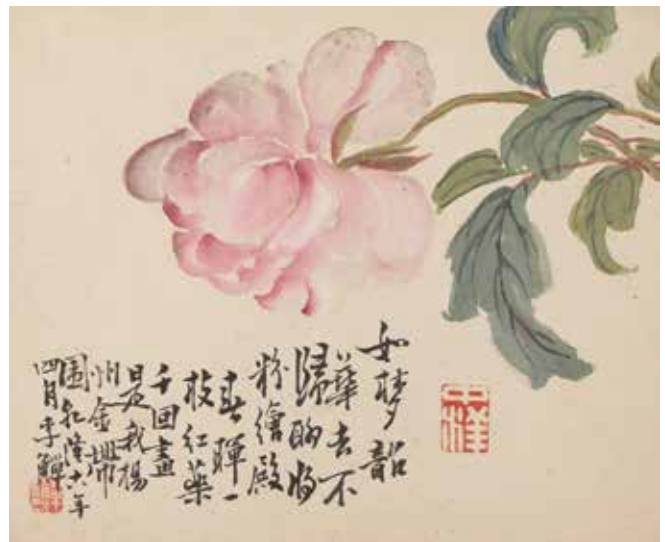 如夢韶
華去不
歸聊將
粉繪殿
春暉一
枝紅藥
千回畫
是我揚
州金帶
圍乾隆六年
四月李鱓
中洋